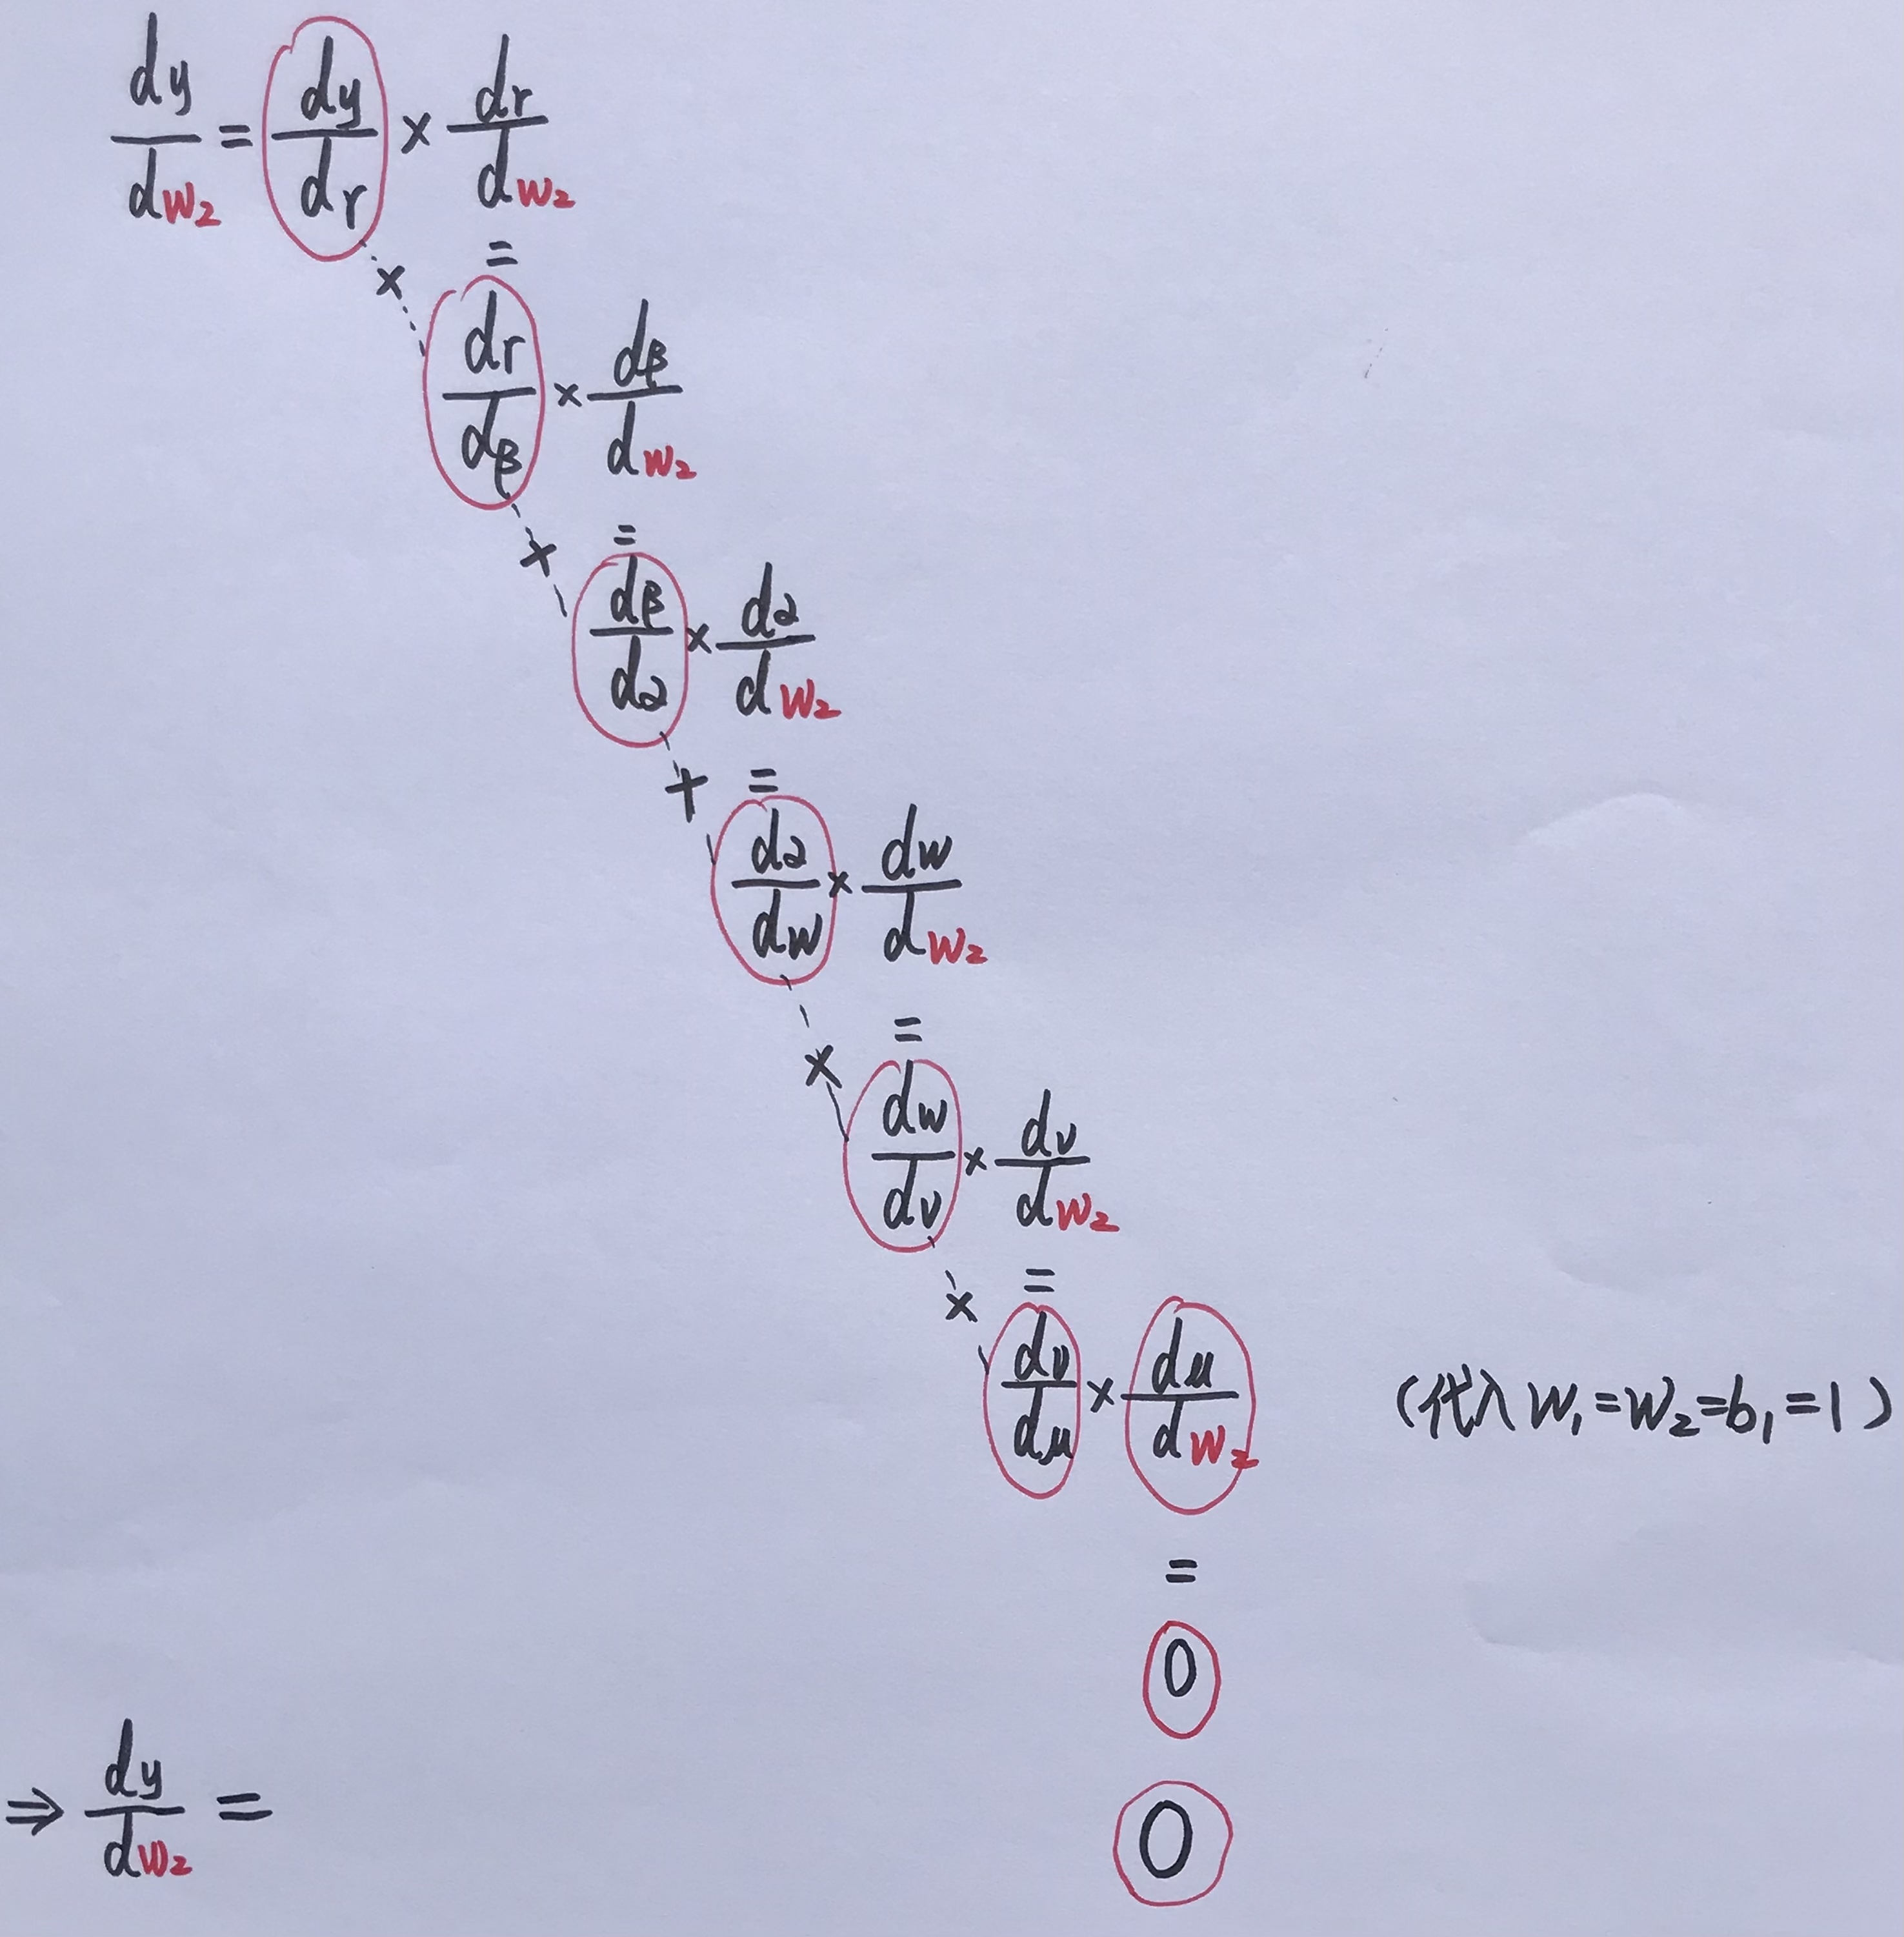 dy/dw₂ = dy/dr × dr/dw₂
× =
dr/dβ × dβ/dw₂
× =
dβ/da × da/dw₂
× =
da/dw × dw/dw₂
× =
dw/dv × dv/dw₂
× =
dv/du × du/dw₂ (代入 w₁=w₂=b₁=1)
=
0
⇒ dy/dw₂ = 0